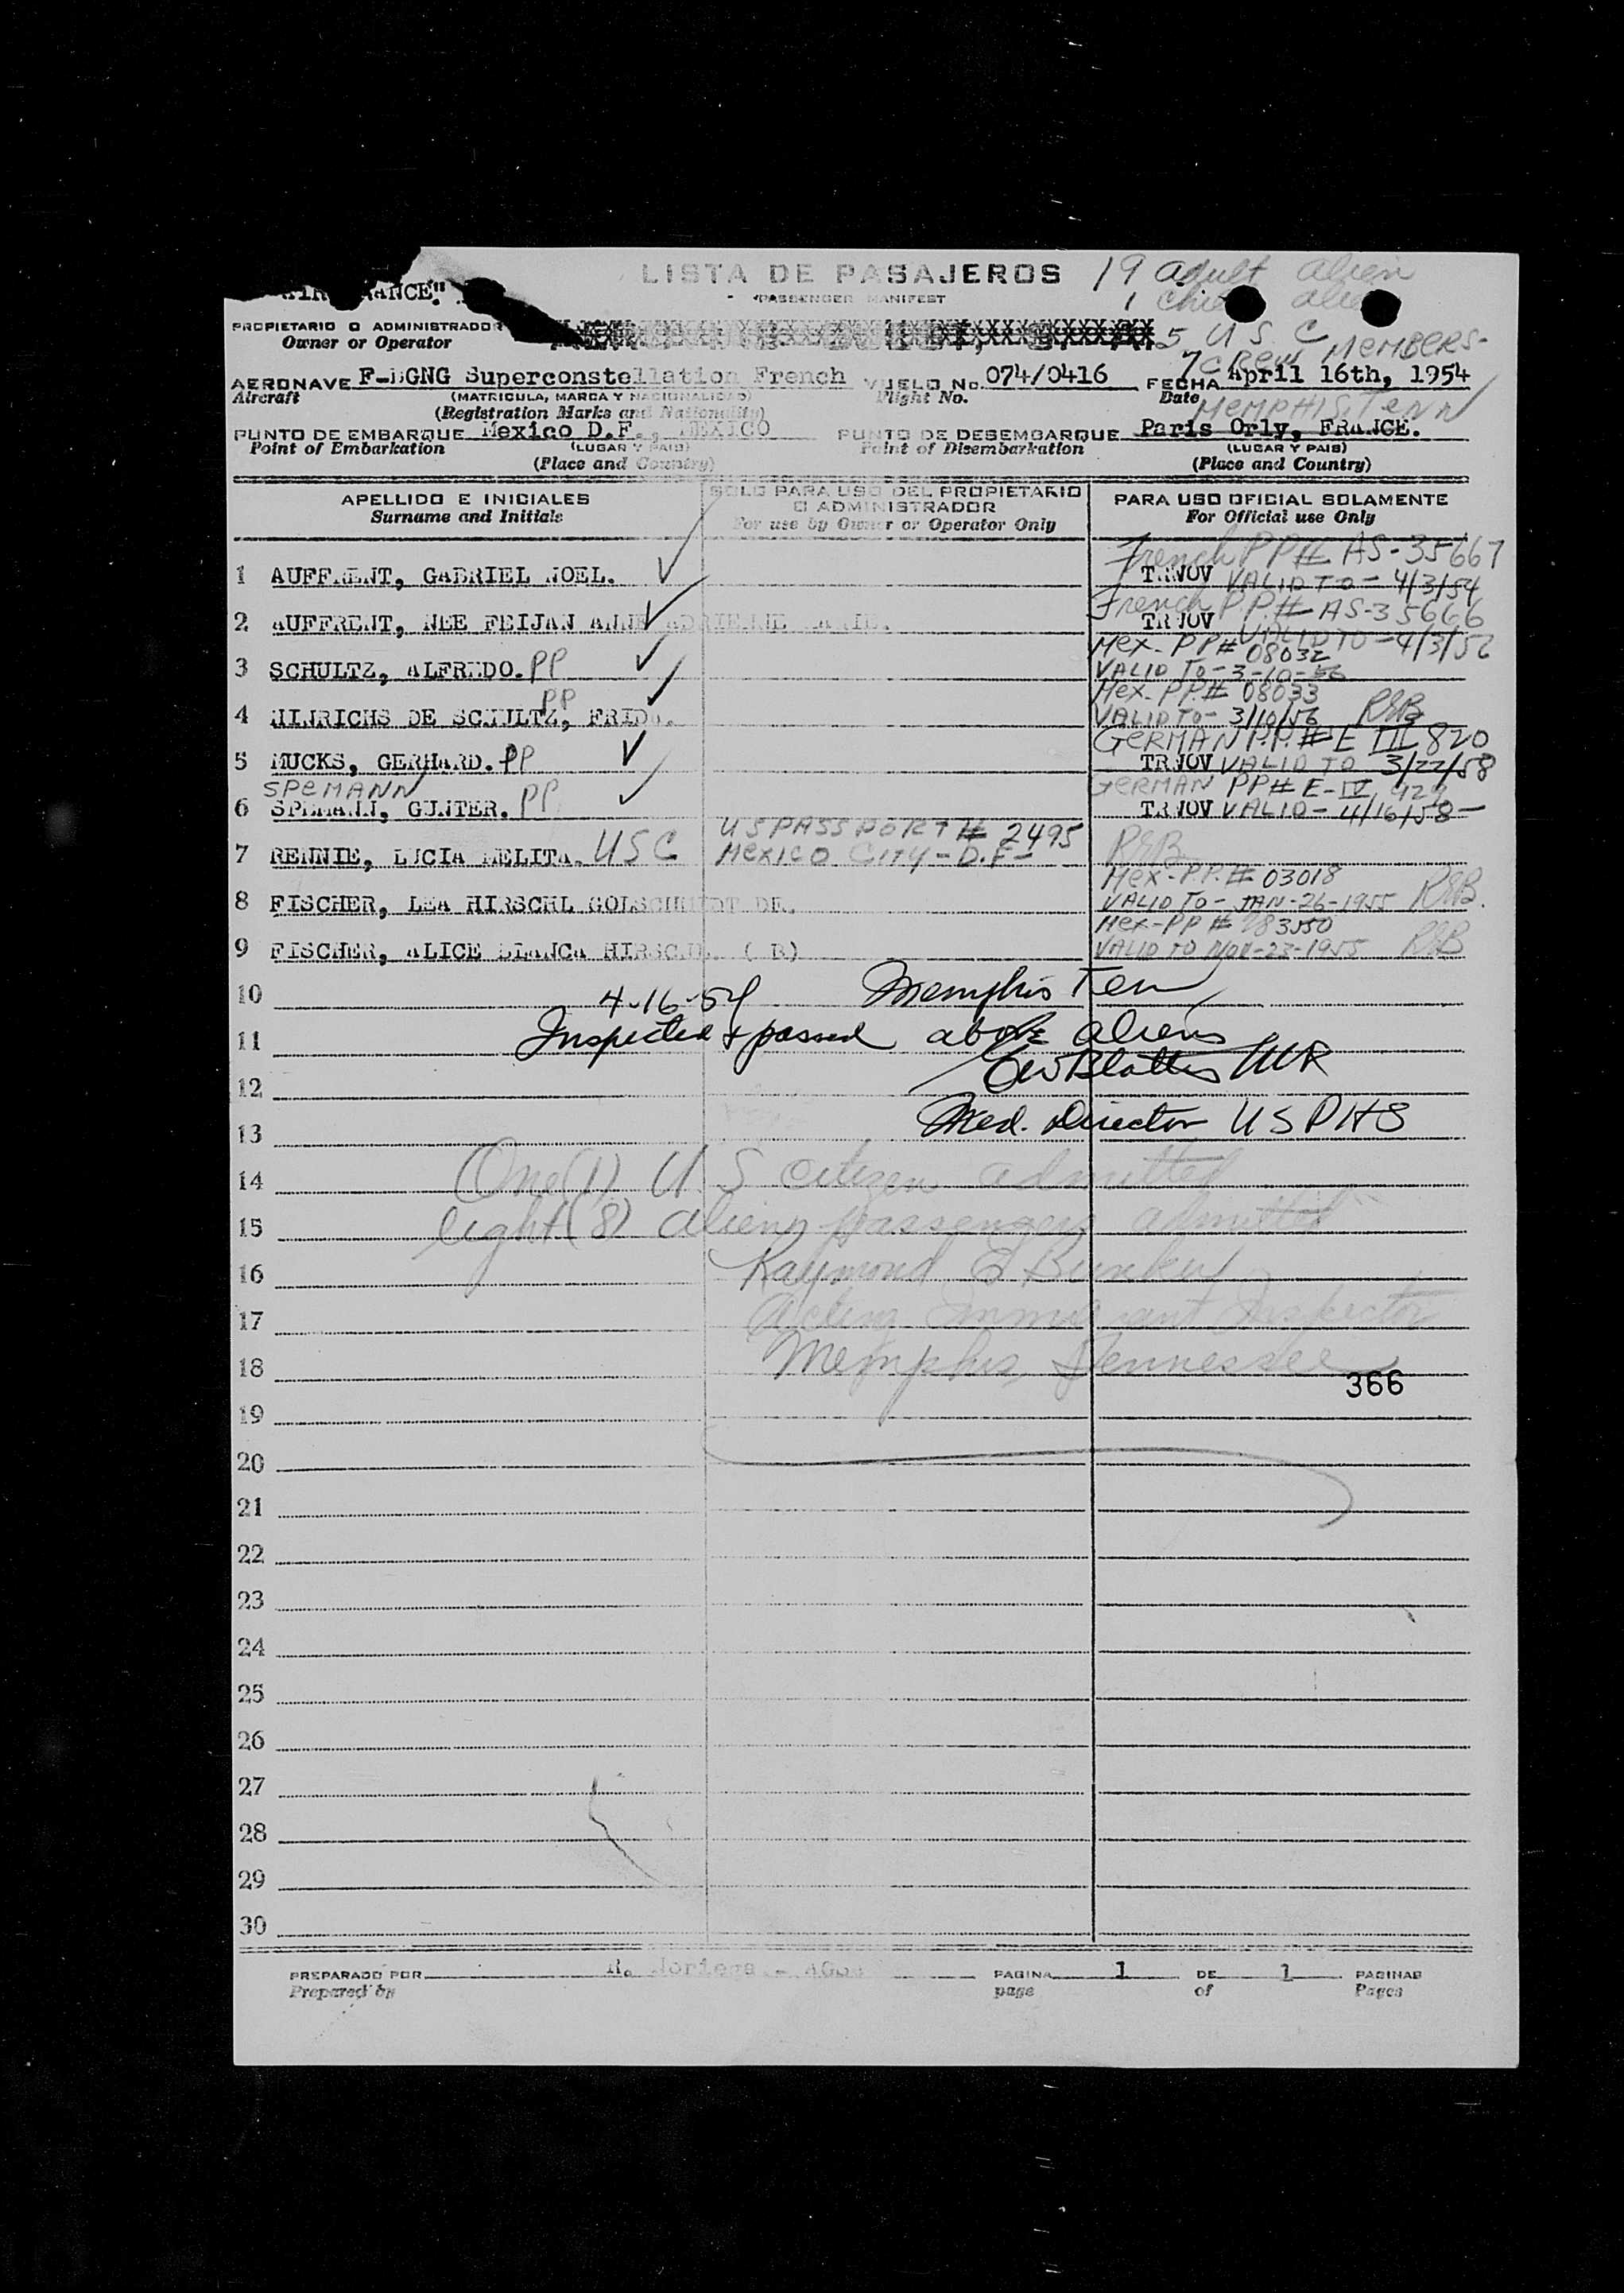 LISTA DE PASAJEROS
PASSENGER MANIFEST
19 adult alien
1
PROPIETARIO O ADMINISTRADOR
Owner or Operator
5 U S C
7 Crew MEMBERS-
AERONAVE F-BGNG Superconstellation French VUELO No. 074/0416 FECHA April 16th, 1954
Aircraft (MATRICULA, MARCA Y NACIONALIDAD) Flight No. Date
(Registration Marks and Nationality) MEMPHIS, TENN
PUNTO DE EMBARQUE Mexico D.F., MEXICO PUNTO DE DESEMBARQUE Paris Orly, FRANCE.
Point of Embarkation (LUGAR Y PAIS) Point of Disembarkation (LUGAR Y PAIS)
(Place and Country) (Place and Country)
APELLIDO E INICIALES SOLO PARA USO DEL PROPIETARIO PARA USO OFICIAL SOLAMENTE
O ADMINISTRADOR
Surname and Initials For use by Owner or Operator Only For Official use Only
French PP# AS-35667
1 AUFFRENT, GABRIEL NOEL. TRWOV VALID TO - 4/3/54
French P.P.# AS-35666
2 AUFFRENT, NEE FEIJAN ANNE ADRIENNE MARIE. TRWOV VALID TO - 4/3/56
Mex- PP# 08032
3 SCHULTZ, ALFREDO. PP VALID TO - 3-10-56
PP Mex- P.P.# 08033
4 HINRICHS DE SCHULTZ, FRIDA. VALID TO - 3/10/56 REB
GERMAN P.P. # E III 820
5 MUCKS, GERHARD. PP TRWOV VALID TO 3/22/58
SPEMANN GERMAN PP# E-IV
6 SPEMANN, GUNTER. PP TRWOV VALID - 4/16/58 -
US PASSPORT # 2495
7 RENNIE, LUCIA MELITA. USC MEXICO CITY - D.F - REB
Mex- P.P. # 03018
8 FISCHER, LEA HIRSCHL GOLSCHMIDT DE. VALID TO - JAN-26-1955 REB.
Mex-PP # 83550
9 FISCHER, ALICE BLANCA HIRSCHL. ( B) VALID TO NOV-23-1955 REB
10 4-16-54 Memphis Ten
11 Inspected & passed above aliens
12
13 Med. Director USPHS
14 One (1) U.S citizen admitted
15 Eight (8) alien passengers admitted
16 Raymond E Bunker
17 Acting Immigrant Inspector
18 Memphis, Tennessee
366
19
20
21
22
23
24
25
26
27
28
29
30
PREPARADO POR R. Noriega PAGINA 1 DE 1 PAGINAS
Prepared by page of Pages